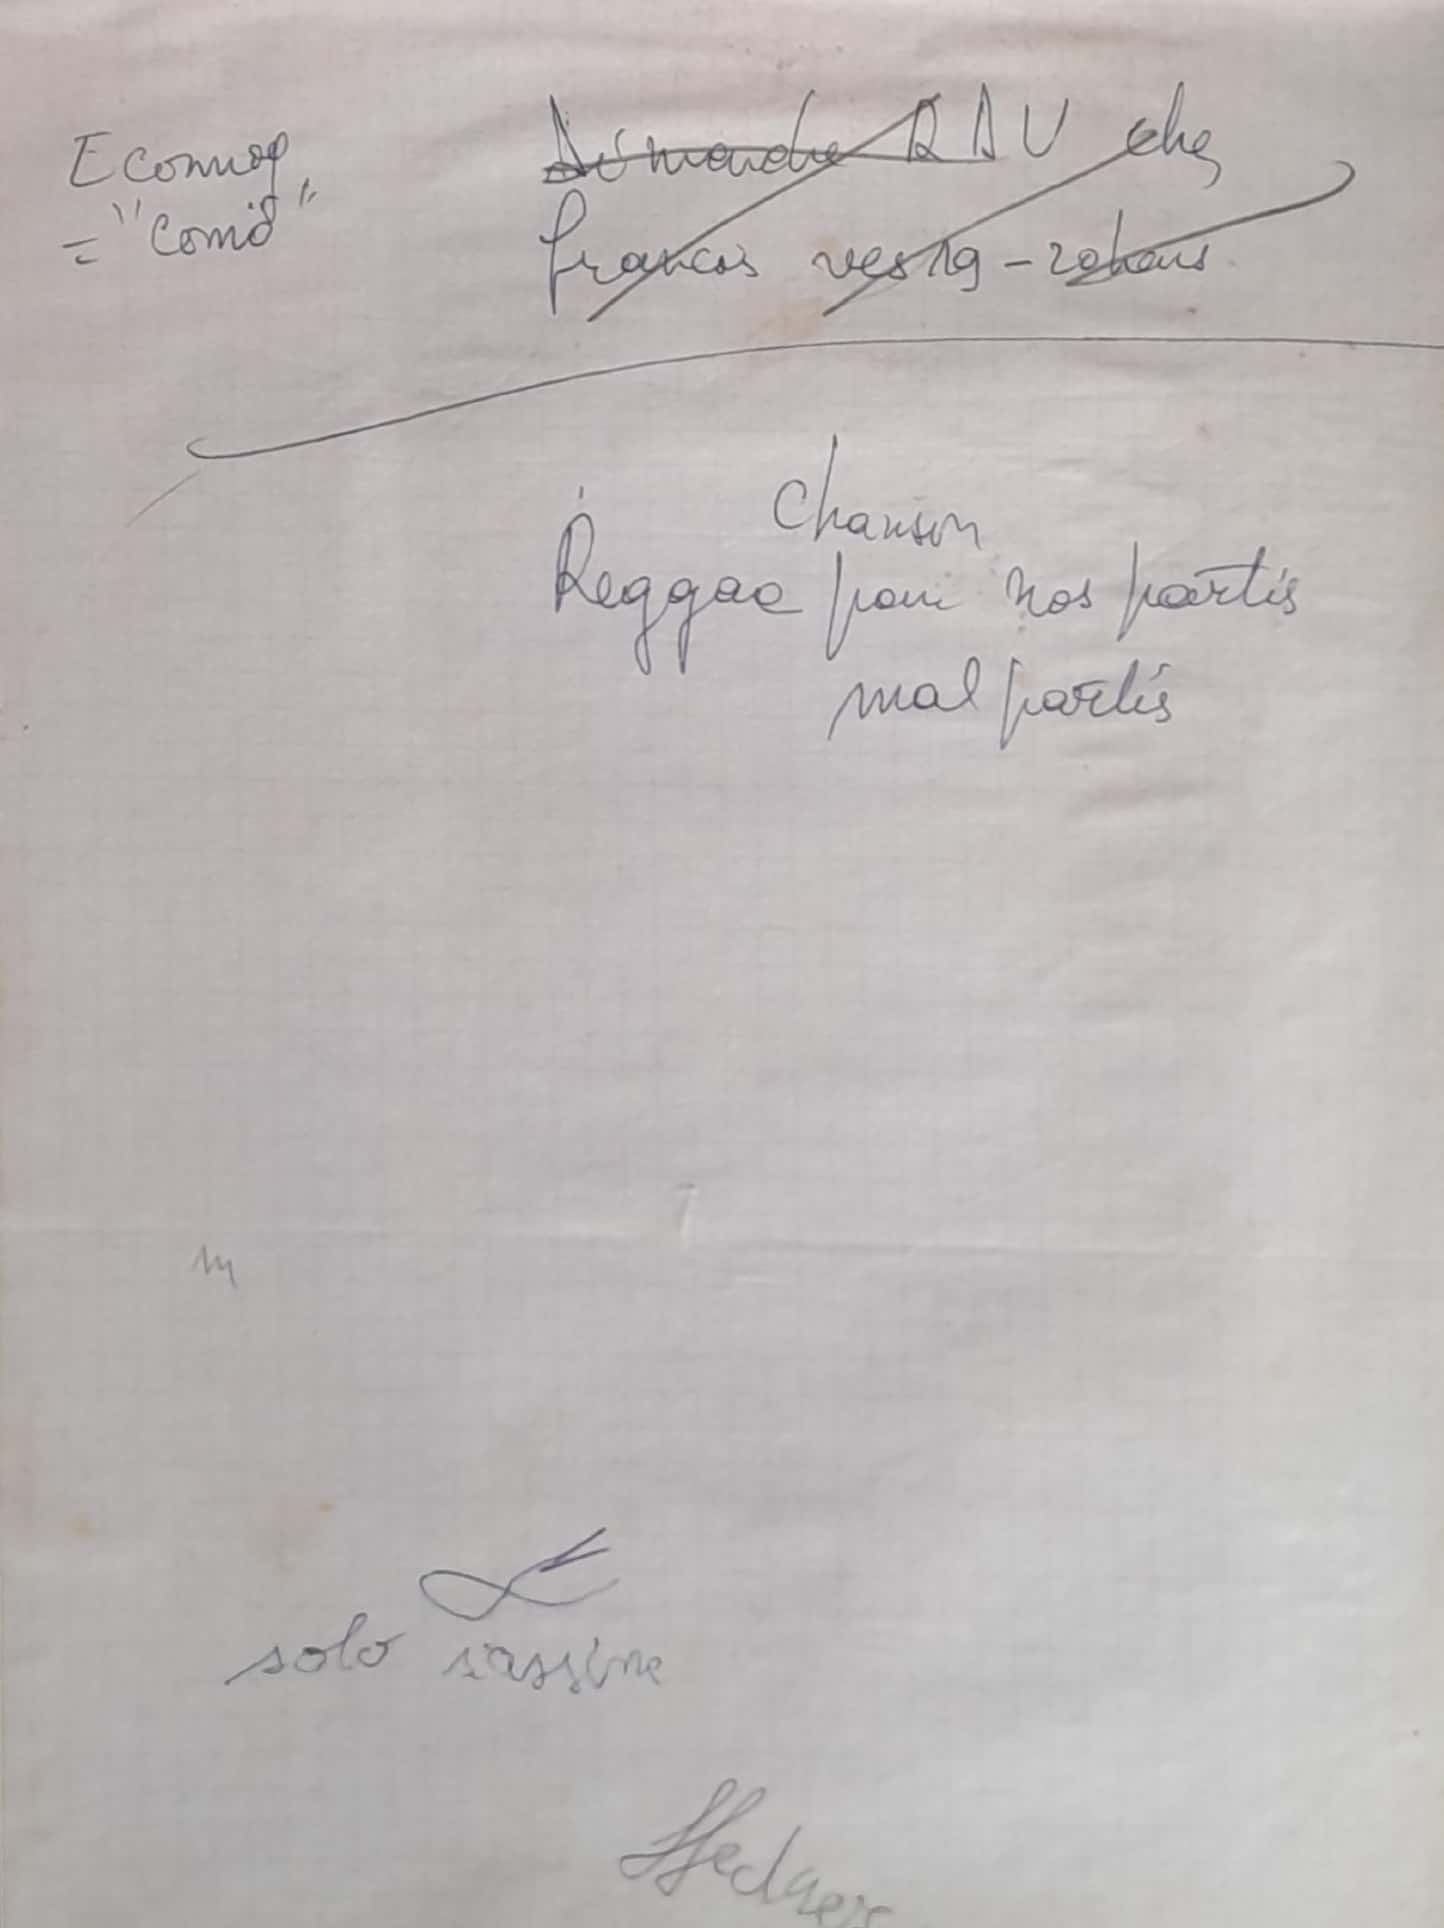 Ecomog
= "Comid"
Dimanche RDV chez
francis vers 19 - 20 heures
Chanson
Reggae pour nos partis
mal partis
solo sassine